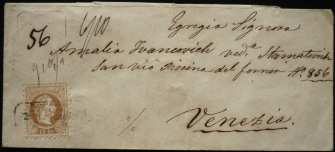 56
Egregia Signora
Amalia Ivancovich ved.a
San vio Piscina del forner No. 856
Venezia.